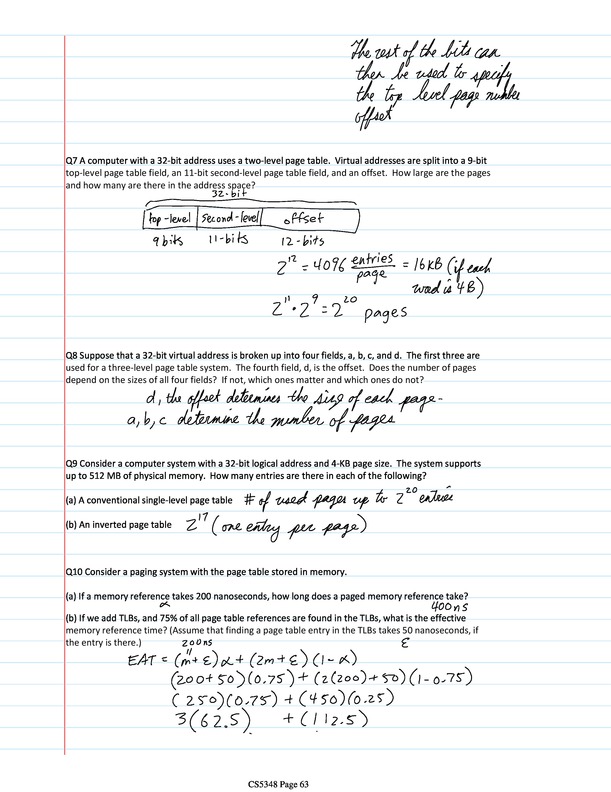 The rest of the bits can
then be used to specify
the top level page number
offset
Q7 A computer with a 32-bit address uses a two-level page table. Virtual addresses are split into a 9-bit
top-level page table field, an 11-bit second-level page table field, and an offset. How large are the pages
and how many are there in the address space?
32-bit
top-level second-level offset
9 bits 11-bits 12-bits
2^12 = 4096 entries/page = 16KB (if each
word is 4B)
2^11 · 2^9 = 2^20 pages
Q8 Suppose that a 32-bit virtual address is broken up into four fields, a, b, c, and d. The first three are
used for a three-level page table system. The fourth field, d, is the offset. Does the number of pages
depend on the sizes of all four fields? If not, which ones matter and which ones do not?
d, the offset determines the size of each page.
a, b, c determine the number of pages
Q9 Consider a computer system with a 32-bit logical address and 4-KB page size. The system supports
up to 512 MB of physical memory. How many entries are there in each of the following?
(a) A conventional single-level page table # of used pages up to 2^20 entries
(b) An inverted page table 2^17 (one entry per page)
Q10 Consider a paging system with the page table stored in memory.
(a) If a memory reference takes 200 nanoseconds, how long does a paged memory reference take?
α 400ns
(b) If we add TLBs, and 75% of all page table references are found in the TLBs, what is the effective
memory reference time? (Assume that finding a page table entry in the TLBs takes 50 nanoseconds, if
the entry is there.) 200ns ε
EAT = (m+ε)α + (2m+ε)(1-α)
(200+50)(0.75) + (2(200)+50)(1-0.75)
(250)(0.75) + (450)(0.25)
3(62.5) + (112.5)
CS5348 Page 63